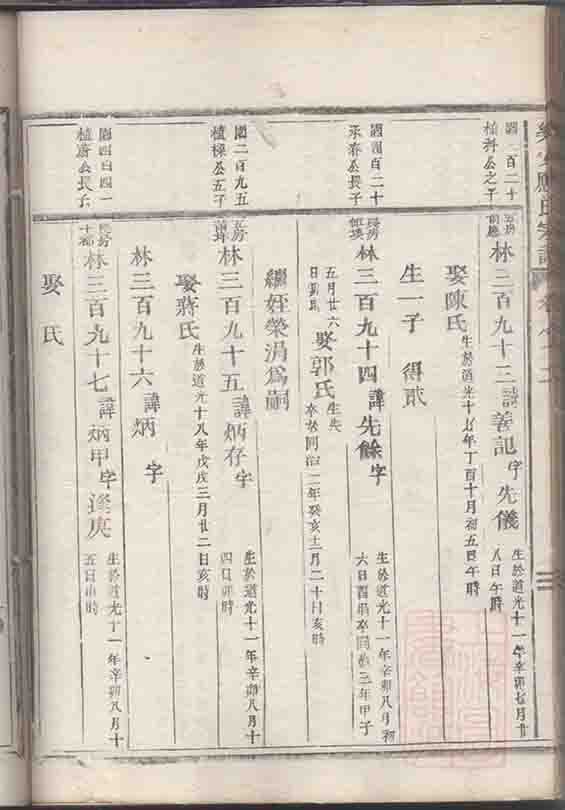 應氏宗譜
國百二十
植 公之子
林三百九十三諱善記字先儀
生於道光十一年辛卯七月廿
八日午時
娶陳氏
生於道光十 年丁酉十月初五日午時
生一子 得貳
國四百二十
承奔公長子
林三百九十四諱先餘字
生於道光十一年辛卯八月初
六日酉時卒同治三年甲子
五月廿六
日 時
娶郭氏
生失
卒於同治二年癸亥十二月二十日亥時
繼姪榮涓為嗣
國二百九五
植樑公五子
林三百九十五諱炳存字
生於道光十一年辛卯八月十
四日卯時
娶蔣氏
生於道光十八年戊戌三月廿二日亥時
林三百九十六諱炳 字
國四百四一
植 公長子
林三百九十七諱炳甲字逢庚
生於道光十一年辛卯八月十
五日 時
娶 氏